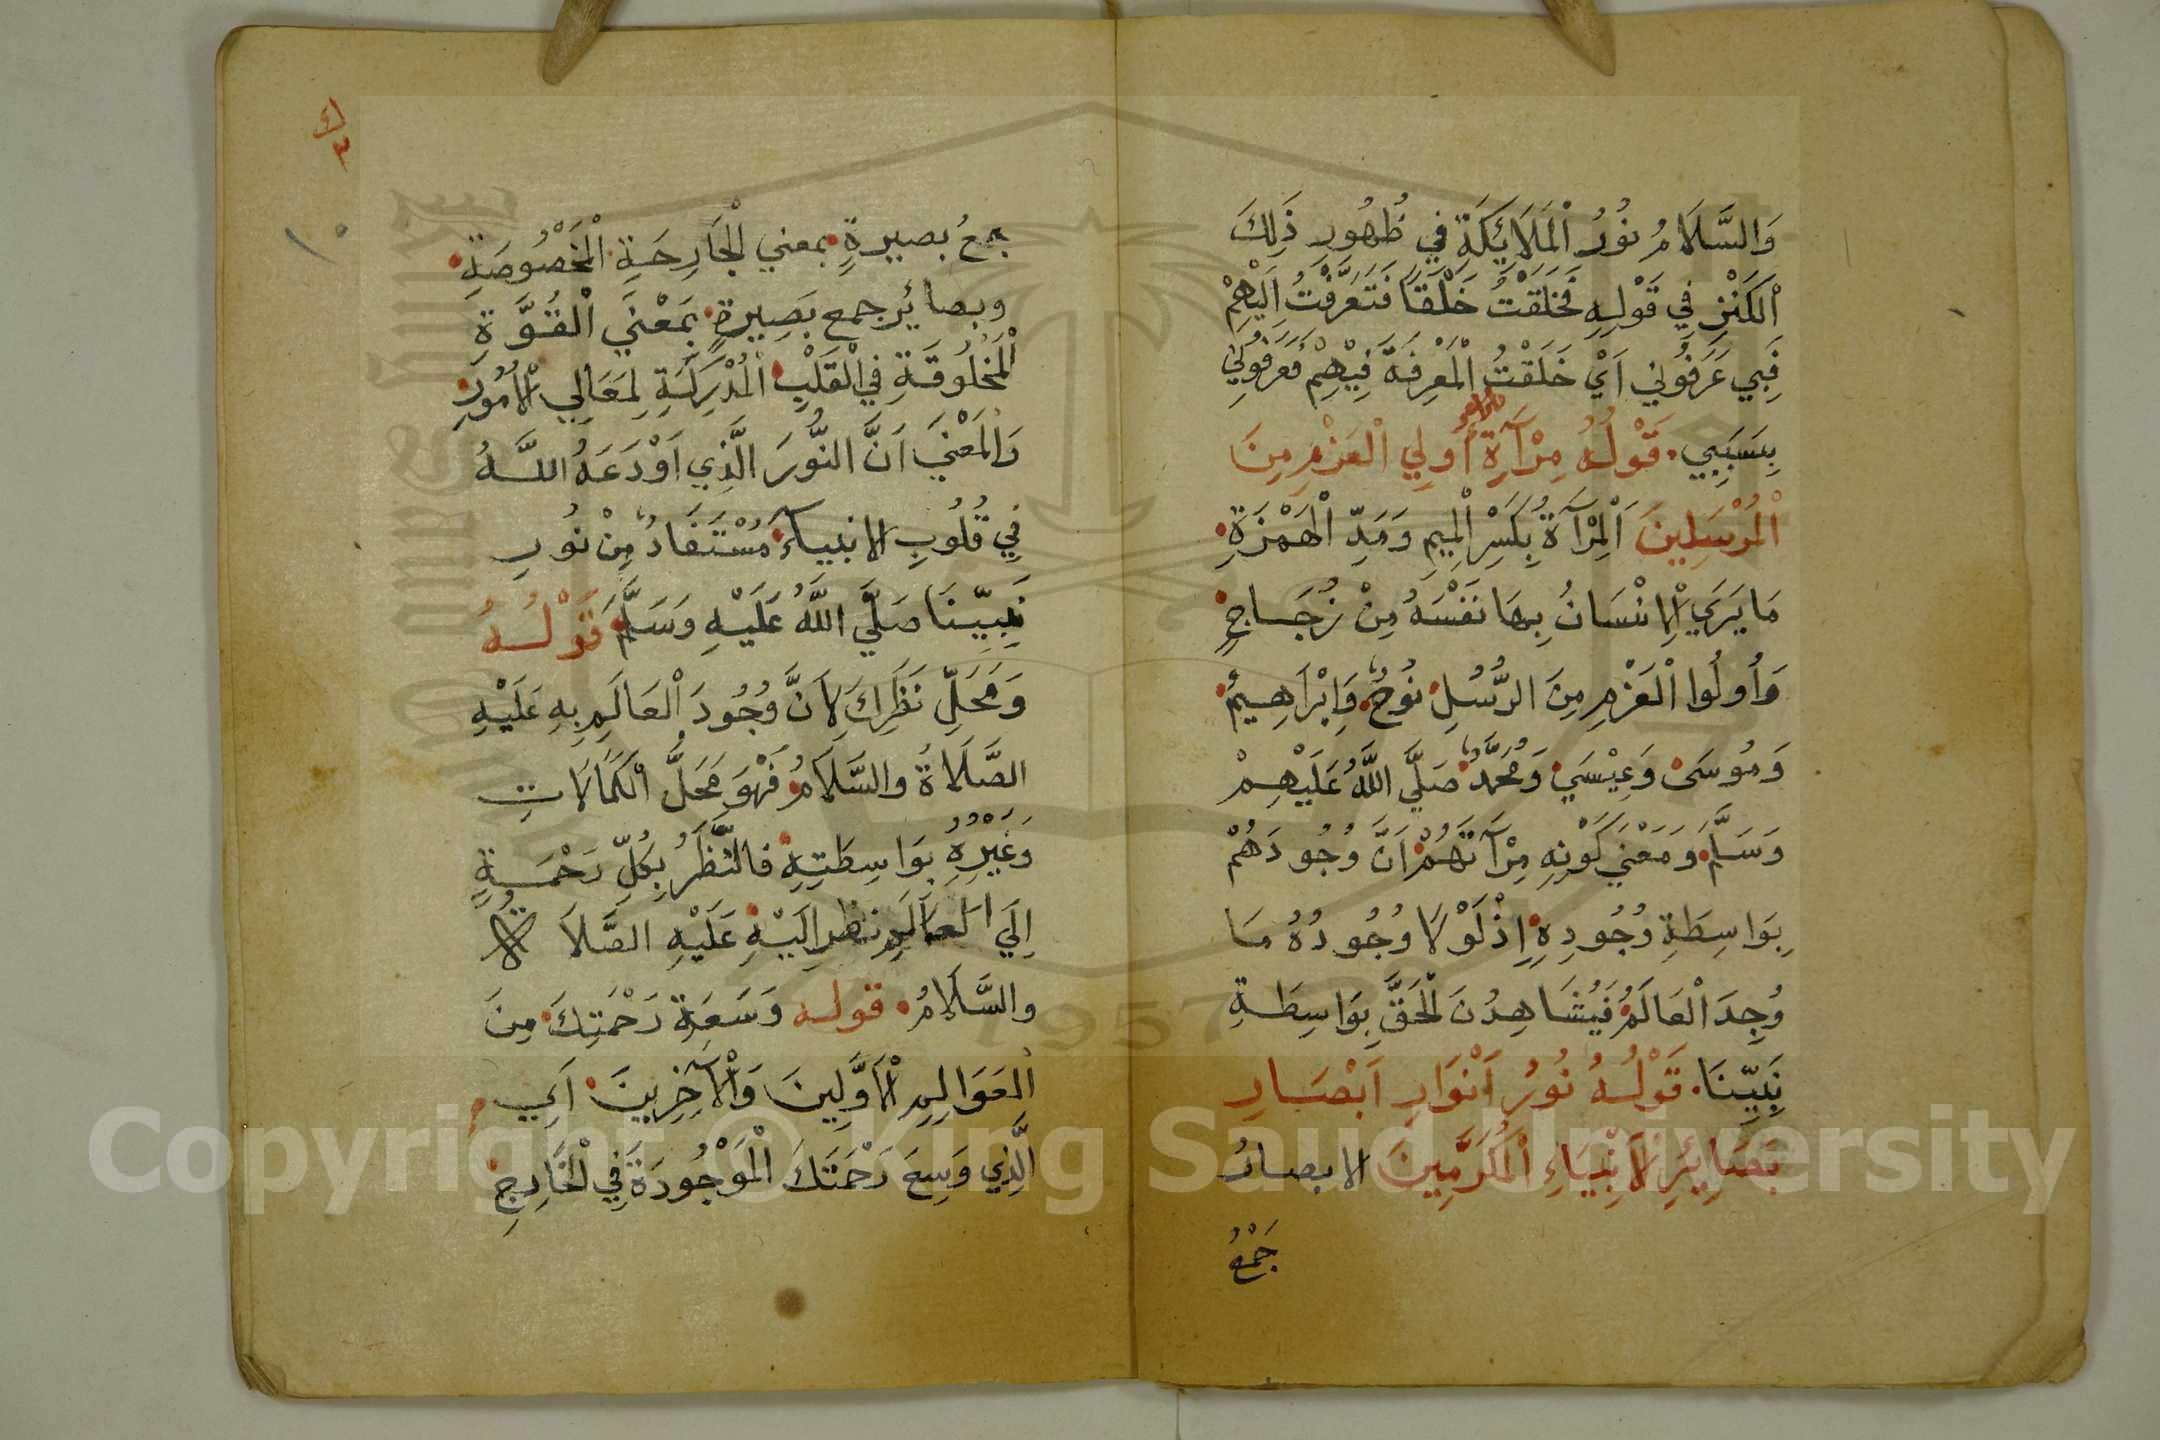 وَالسَّلَامُ نُورُ الْمَلَائِكَةِ فِي ظُهُورِ ذَلِكَ
الْكَنْزِ فِي قَوْلِهِ فَخَلَقْتُ خَلْقًا فَتَعَرَّفْتُ اِلَيْهِمْ
فَبِي عَرَفُونِي اَيْ خَلَقْتُ الْمَعْرِفَةَ فِيْهِمْ فَعَرَفُونِي
بِسَبَبِي. قَوْلُهُ مِرْآةِ أُولِي الْعَزْمِ مِنَ
الْمُرْسَلِينَ اَلْمِرْآةُ بِكَسْرِ الْمِيمِ وَمَدِّ الْهَمْزَةِ
مَا يَرَي الْاِنْسَانُ بِهَا نَفْسَهُ مِنْ زُجَاجٍ
وَأُولُوا الْعَزْمِ مِنَ الرُّسُلِ نُوحٌ وَاِبْرَاهِيمُ
وَمُوسَى وَعِيْسَي وَمُحَمَّدٌ صَلَّي اللَّهُ عَلَيْهِمْ
وَسَلَّمَ وَمَعْنَي كَوْنِهِ مِرْآتَهُمْ اَنَّ وُجُودَهُمْ
بِوَاسِطَةِ وُجُودِهِ اِذْ لَوْلَا وُجُودُهُ مَا
وُجِدَ الْعَالَمُ فَيُشَاهِدُنَ الْحَقَّ بِوَاسِطَةِ
نَبِيِّنَا. قَوْلُهُ نُورُ اَنْوَارِ اَبْصَارِ
بَصَايِرِ الْاَنْبِيَاءِ الْمُكَرَّمِينَ الابصارُ
جَمْعُ
جمعُ بصيرةٍ بمعني الْجَارِحَةِ الْمَخْصُوصَةِ
وبصائر جمع بَصِيرةٍ بِمَعْنَي الْقُوَّةِ
الْمَخْلُوقَةِ فِي الْقَلْبِ الْمُدْرِكَةِ لِمَعَالِي الْاُمُورِ
وَالْمَعْنَي اَنَّ النُّورَ الَّذِي اَوْدَعَهُ اللَّهُ
فِي قُلُوبِ الانبياءَ مُسْتَفَادٌ مِنْ نُورِ
نَبِيِّنَا صَلَّي اللَّهُ عَلَيْهِ وَسَلَّمَ قَوْلُهُ
وَمَحَلِّ نَظَرِكَ لِاَنَّ وُجُودَ الْعَالَمِ بِهِ عَلَيْهِ
الصَّلَاةُ والسَّلَامُ فَهْوَ مَحَلُّ الْكَمَالَاتِ
وَغَيْرُهُ بِوَاسِطَتِهِ فالنَّظَرُ بِكُلِّ رَحْمَةٍ
اِلَي الْعَالَمِ نظر اِلَيْهِ عَلَيْهِ الصَّلَاةُ
والسَّلَامُ. قوله وَسَعَةِ رَحْمَتِكَ مِنَ
الْعَوَالِمِ الْاَوَّلِينَ وَالْآخِرِينَ اَيِ
الَّذِي وَسِعَ رَحْمَتَكَ الْمَوْجُودَةَ فِي الْخَارِجِ
١٠
Copyright © King Saud University
1957